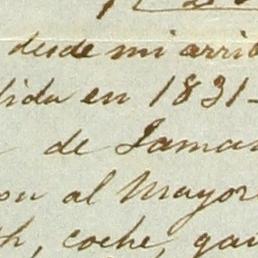 desde mi arri
lida en 1831-
de Jamai
on al Mayor
h, coche, gan